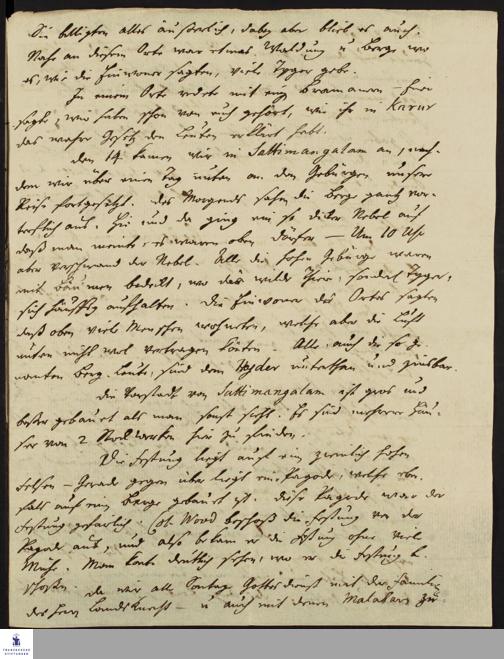 Sie billigten alles äußerlich, dabey aber blieb es auch.
Nahe an diesem Orte war etwas Waldung u. Berge, wo
es, wie die Einwoner sagten, viele Tyger gebe.
In einem Orte redete mit einig Bramanern hier
sagte, wir haben schon von euch gehört, wie ihr in Karur
das wahre Gesetz den Leuten erklärt habt.
den 14 kamen wir in Sattimangalam an, nach-
dem wir über einen Tag unten an den Gebürgen unsere
Reise fortgesetzt. Des Morgends sahen die Berge gantz vor-
trefflich aus. Hie und da ging ein so dicker Nebel auf
daß man meinte, es waren oben Dörfer — Um 10 Uhr
aber verschwand der Nebel. Alle die hohen Gebürge waren
mit Bäumen bedekt, wo das wilde Thier, sonderl Tyger,
sich häuffig aufhalten. Die Einwoner des Ortes sagten
daß oben viele Menschen wohneten, welche aber die Luft
unten nicht wol vertragen könten. Alle, auch die so ge-
nanten Berg-Leute, sind dem Hyder unterthan und zinsbar.
Die Vorstadt von Sattimangalam ist gros und
besser gebauet als man sonst sieht. Es sind mehrere Häu-
ser von 2 Stockwerken hier zu finden.
Die Festung liegt auf ein ziemlich hohen
Felsen — Gerade gegen über liegt eine Pagode, welche eben-
fals auf ein Berge gebauet ist. Diese Pagode war der
Festung gefärlich. Col. Wood beschoß die Festung von der
Pagode aus, und also bekam er die Festung ohne viele
Mühe. Man konte deutlich sehen, wo er die Festung be-
schossen. da war alle Sontag Gottesdienst mit der Familie
des Herrn Landsknecht — u. auch mit denen Malabaren zu
FRANCKESCHE
STIFTUNGEN